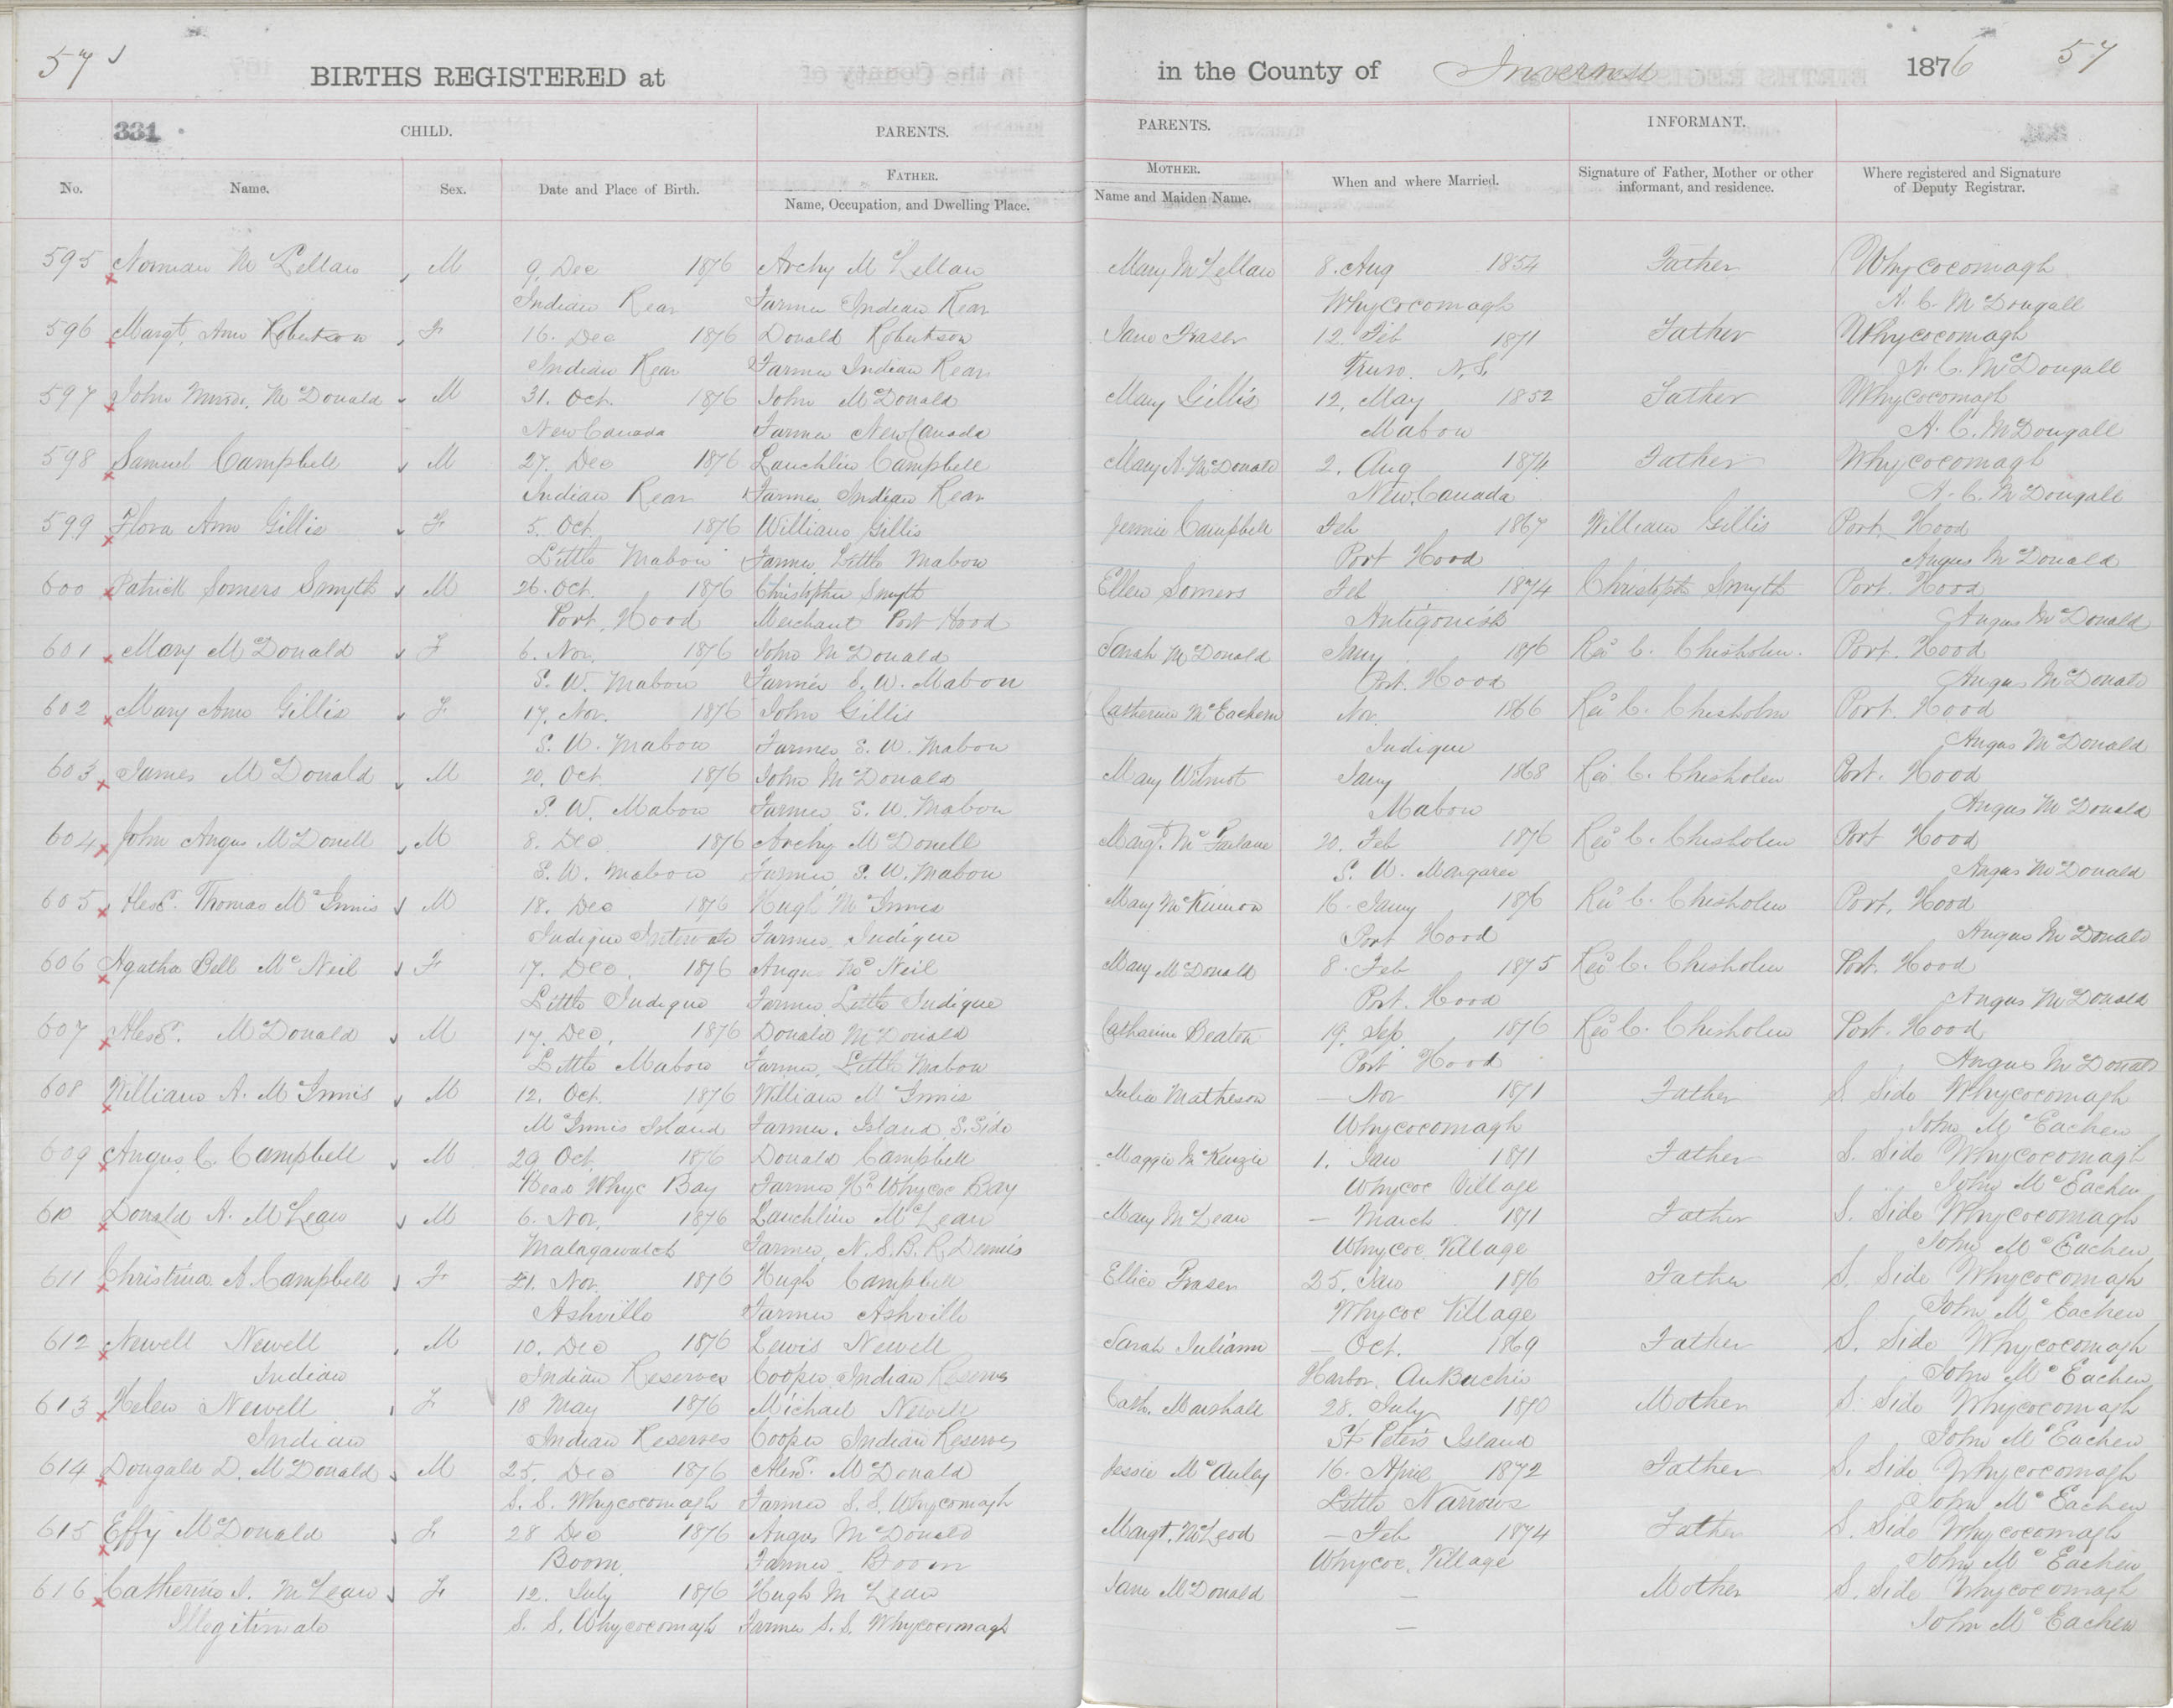 57
BIRTHS REGISTERED at
in the County of Inverness 1876 57
331 CHILD. PARENTS. PARENTS. INFORMANT.
No. Name. Sex. Date and Place of Birth. FATHER. Name, Occupation, and Dwelling Place. MOTHER. Name and Maiden Name. When and where Married. Signature of Father, Mother or other informant, and residence. Where registered and Signature of Deputy Registrar.
595 Norman McLellan M 9. Dec 1876 Archy McLellan Mary McLellan 8. Aug 1854 Father Whycocomagh
Indian Rear Farmer Indian Rear Whycocomagh A. C. McDougall
596 Margt. Ann Robertson F 16. Dec 1876 Donald Robertson Jane Fraser 12. Feb 1871 Father Whycocomagh
Indian Rear Farmer Indian Rear Truro. N.S. A. C. McDougall
597 John McDonald M 31. Oct. 1876 John McDonald Mary Gillis 12. May 1852 Father Whycocomagh
New Canada Farmer New Canada Mabou A. C. McDougall
598 Samuel Campbell M 27. Dec 1876 Lauchlin Campbell Mary A. McDonald 2. Aug 1874 Father Whycocomagh
Indian Rear Farmer Indian Rear New Canada A. C. McDougall
599 Flora Ann Gillis F 5. Oct. 1876 William Gillis Jennie Campbell Feb 1867 William Gillis Port Hood
Little Mabou Farmer Little Mabou Port Hood Angus McDonald
600 Patrick Somers Smyth M 26. Oct. 1876 Christopher Smyth Ellen Somers Feb 1874 Christoph Smyth Port. Hood
Port. Hood Merchant Port Hood Antigonish Angus McDonald
601 Mary McDonald F 6. Nov. 1876 John McDonald Sarah McDonald Jany 1876 Rev C. Chisholm. Port. Hood
S. W. Mabou Farmer S. W. Mabou Port. Hood Angus McDonald
602 Mary Ann Gillis F 17. Nov. 1876 John Gillis Catherine McEachern Nov. 1866 Rev C. Chisholm Port. Hood
S. W. Mabou Farmer S. W. Mabou Judique Angus McDonald
603 James McDonald M 20. Oct 1876 John McDonald Mary Wilmot Jany 1868 Rev C. Chisholm Port. Hood
S. W. Mabou Farmer S. W. Mabou Mabou Angus McDonald
604 John Angus McDonell M 8. Dec 1876 Archy McDonell Margt. McFarlane 20. Feb 1876 Rev C. Chisholm Port Hood
S. W. Mabou Farmer S. W. Mabou S. W. Margaree Angus McDonald
605 Alexr. Thomas McInnis M 18. Dec 1876 Hugh McInnis Mary McKinnon 16. Jany 1876 Rev C. Chisholm Port. Hood
Judique Intervale Farmer. Judique Port Hood Angus McDonald
606 Agatha Bell McNeil F 17. Dec. 1876 Angus McNeil Mary McDonald 8. Feb 1875 Rev C. Chisholm Port. Hood
Little Judique Farmer Little Judique Port. Hood Angus McDonald
607 Alexr. McDonald M 17. Dec. 1876 Donald McDonald Catharine Beaton 19. Sep. 1876 Rev C. Chisholm Port. Hood
Little Mabou Farmer. Little Mabou Port Hood Angus McDonald
608 William A. McInnis M 12. Oct. 1876 William McInnis Julia Matheson — Nov 1871 Father S Side Whycocomagh
McInnis Island Farmer. Island S. Side Whycocomagh John McEachen
609 Angus C. Campbell M 29 Oct. 1876 Donald Campbell Maggie McKenzie 1. Jan 1871 Father S. Side Whycocomagh
Head Whyc Bay Farmer Hd Whycoc Bay Whycoc Village John McEachen
610 Donald A. McLean M 6. Nov. 1876 Lauchlin McLean Mary McLean — March 1871 Father S. Side Whycocomagh
Malagawatch Farmer, N. S. B. R. Dennis Whycoc Village John McEachen
611 Christina A Campbell F 21. Nov. 1876 Hugh Campbell Ellice Fraser 25. Jan 1876 Father S. Side Whycocomagh
Ashville Farmer Ashville Whycoc Village John McEachen
612 Newell Newell M 10. Dec 1876 Lewis Newell Sarah Juliann — Oct. 1869 Father S. Side Whycocomagh
Indian Indian Reserves Cooper Indian Reserves Harbor. AuBuchie John McEachen
613 Helen Newell F 18 May 1876 Michael Newell Cath. Marshall 28. July 1870 Mother S. Side Whycocomagh
Indian Indian Reserves Cooper Indian Reserves St Peters Island John McEachen
614 Dougald D. McDonald M 25. Dec 1876 Alexr. McDonald Jessie McAuley 16. April 1872 Father S. Side Whycocomagh
S. S. Whycocomagh Farmer S. S. Whycomagh Little Narrows John McEachen
615 Effy McDonald F 28 Dec 1876 Angus McDonald Margt. McLeod — Feb 1874 Father S. Side Whycocomagh
Boom. Farmer. Boom Whycoc. Village John McEachen
616 Catherine J. McLean F 12. July 1876 Hugh McLean Jane McDonald — Mother S. Side Whycocomagh
Illegitimate S. S. Whycocomagh Farmer S. S. Whycocomagh — John McEachen